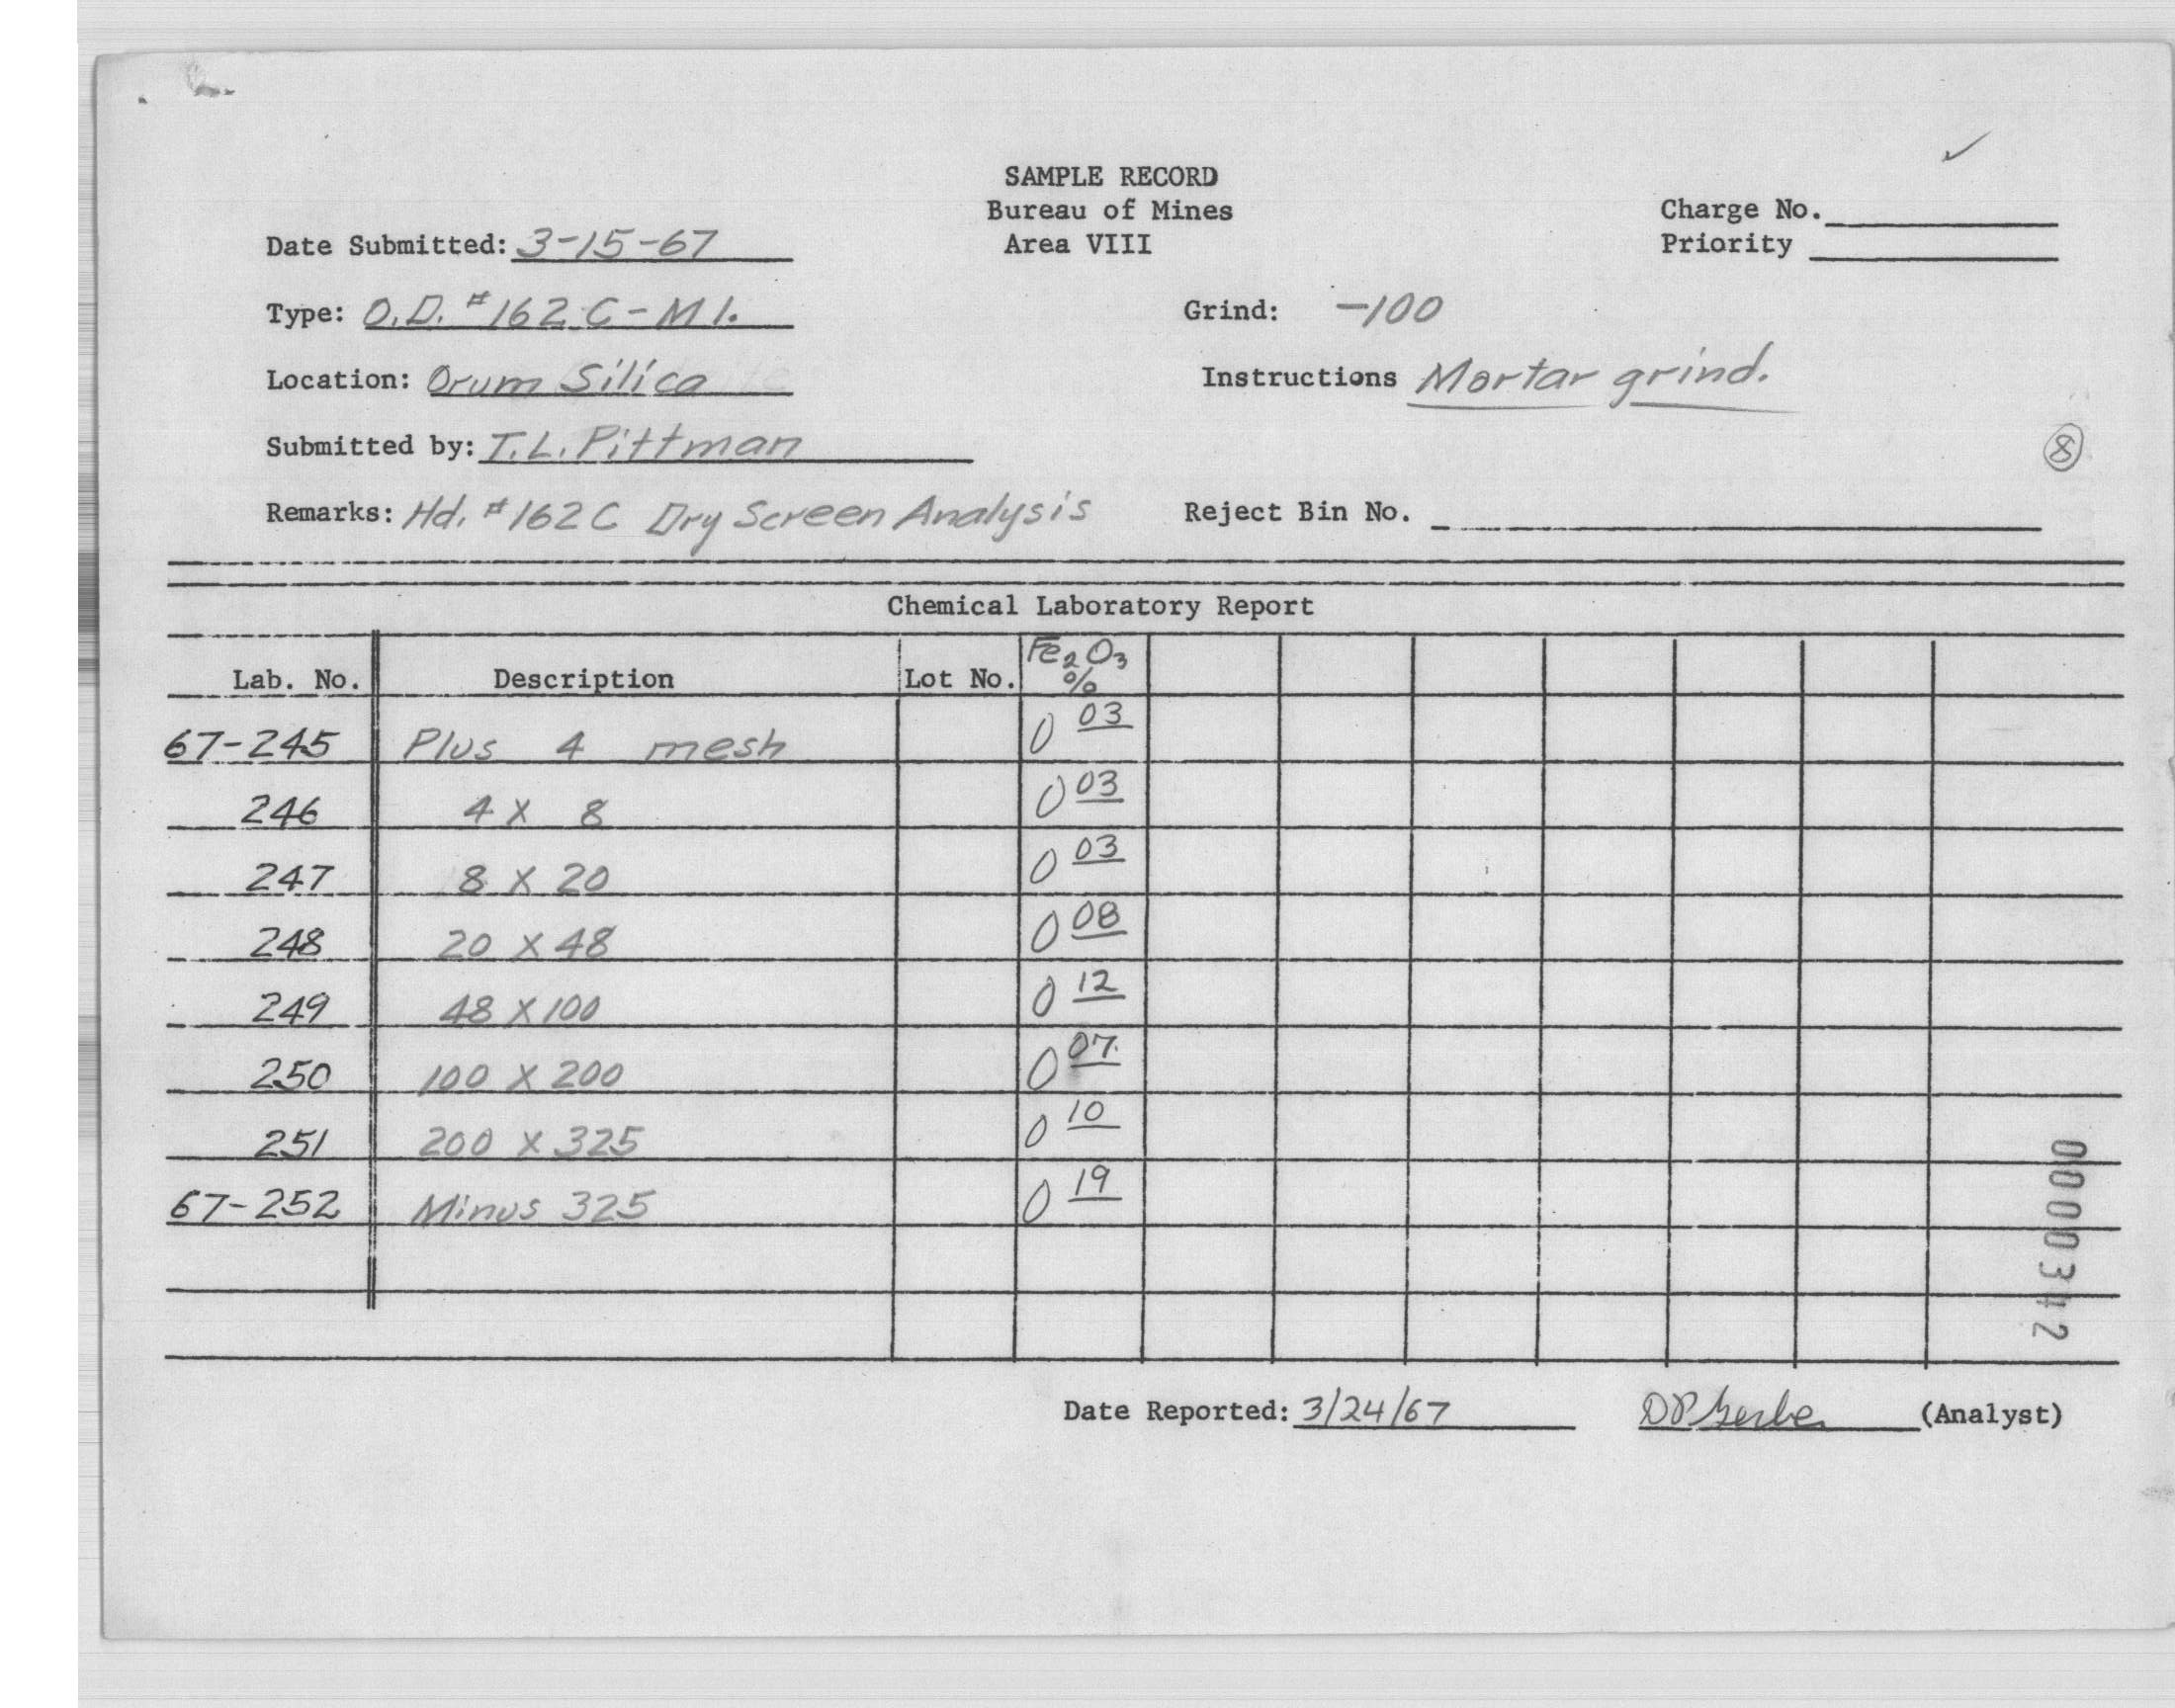 SAMPLE RECORD
Bureau of Mines
Area VIII
Charge No.
Priority
Date Submitted: 3-15-67
Type: O.D. #162 C-M1.
Grind: -100
Location: Orum Silica
Instructions Mortar grind.
Submitted by: T.L. Pittman
8
Remarks: Hd. #162C Dry Screen Analysis
Reject Bin No.
Chemical Laboratory Report
Lab. No. Description Lot No. Fe2O3 %
67-245 Plus 4 mesh 0 03
246 4 X 8 0 03
247 8 X 20 0 03
248 20 X 48 0 08
249 48 X 100 0 12
250 100 X 200 0 07
251 200 X 325 0 10
67-252 Minus 325 0 19
0000342
Date Reported: 3/24/67 (Analyst)